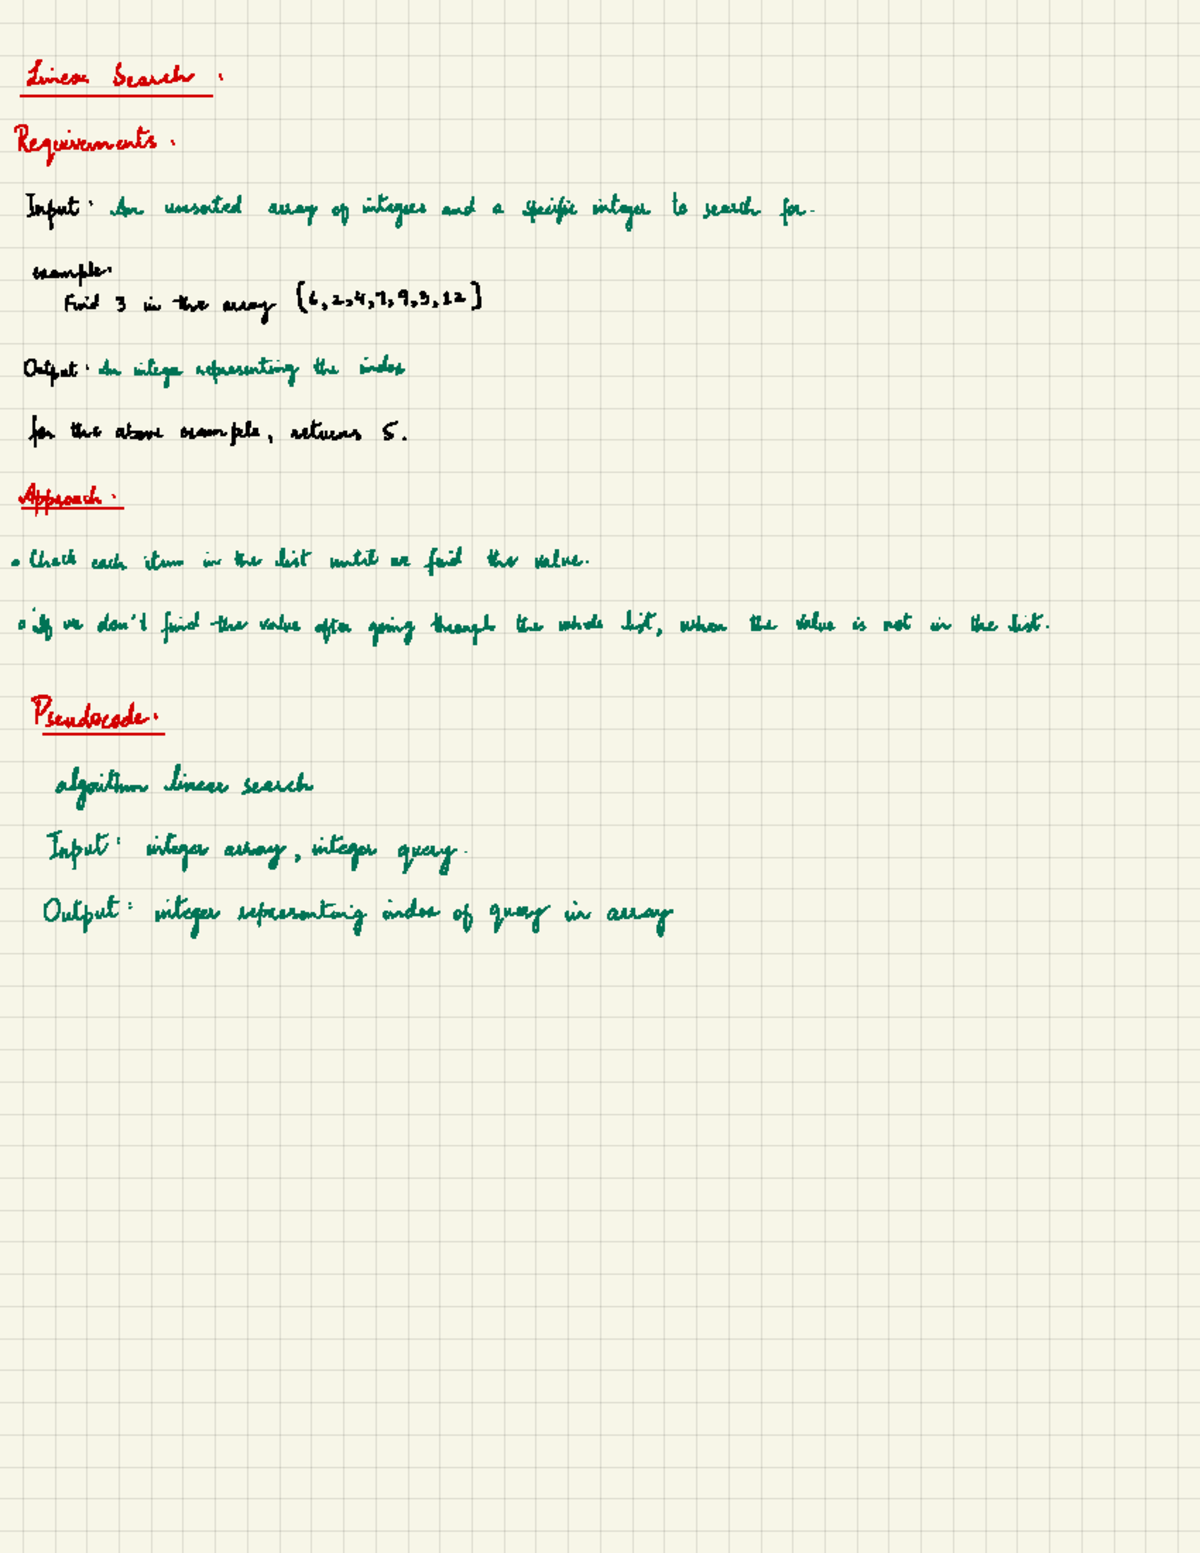 Linear Search :
Requirements :
Input : An unsorted array of integers and a specific integer to search for.
example:
Find 3 in the array [6, 2, 4, 7, 9, 3, 12]
Output : An integer representing the index
for the above example, returns 5.
Approach :
• Check each item in the list until we find the value.
• if we don't find the value after going through the whole list, when the value is not in the list.
Pseudocode :
algorithm linear search
Input : integer array, integer query.
Output : integer representing index of query in array